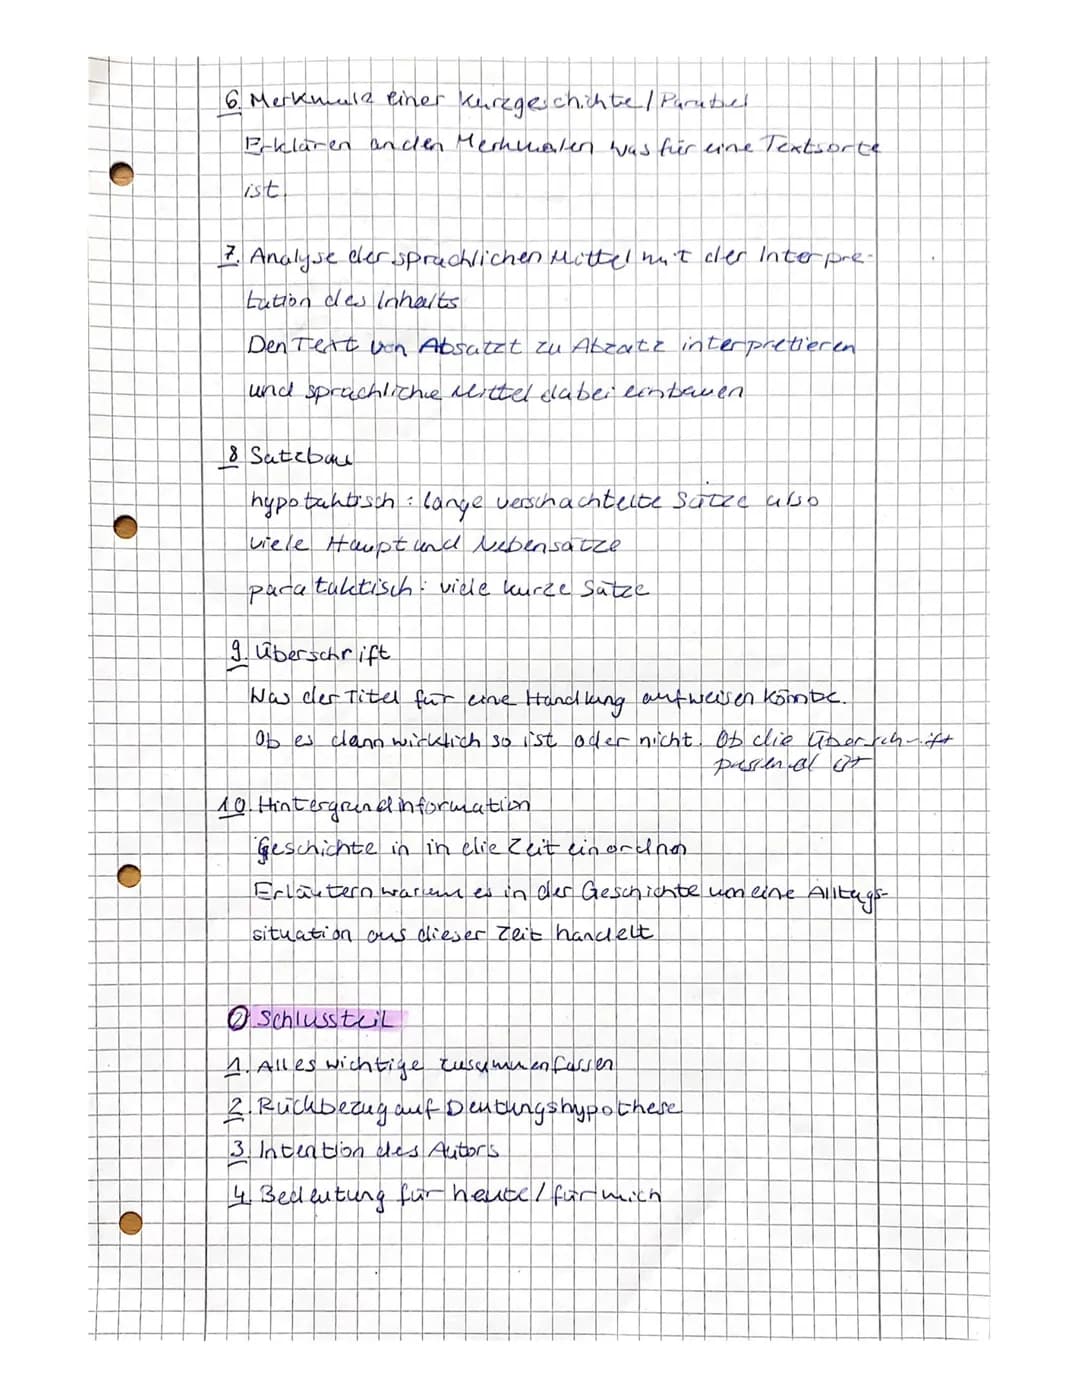 6. Merkmale einer Kurzgeschichte / Parabel
Erklären an den Merkmalen was für eine Textsorte
ist.
7. Analyse der sprachlichen Mittel mit der Interpre-
tation des Inhalts
Den Text von Absatzt zu Abzatz interpretieren
und sprachliche Mittel dabei einbauen
8 Satzbau
hypotahtisch : lange verschachtelte Sätze also
viele Haupt und Nebensätze
parataktisch : viele kurze Sätze
9. Überschrift
Was der Titel für eine Handlung aufweisen könnte.
Ob es dann wirklich so ist oder nicht. Ob die Überschrift
passend ist
10. Hintergrundinformation
Geschichte in in die Zeit einordnen
Erläutern warum es in der Geschichte um eine Alltags-
situation aus dieser Zeit handelt
② Schlussteil
1. Alles wichtige zusammenfassen
2. Rückbezug auf Deutungshypothese
3. Intention des Autors
4. Bedeutung für heute / für mich